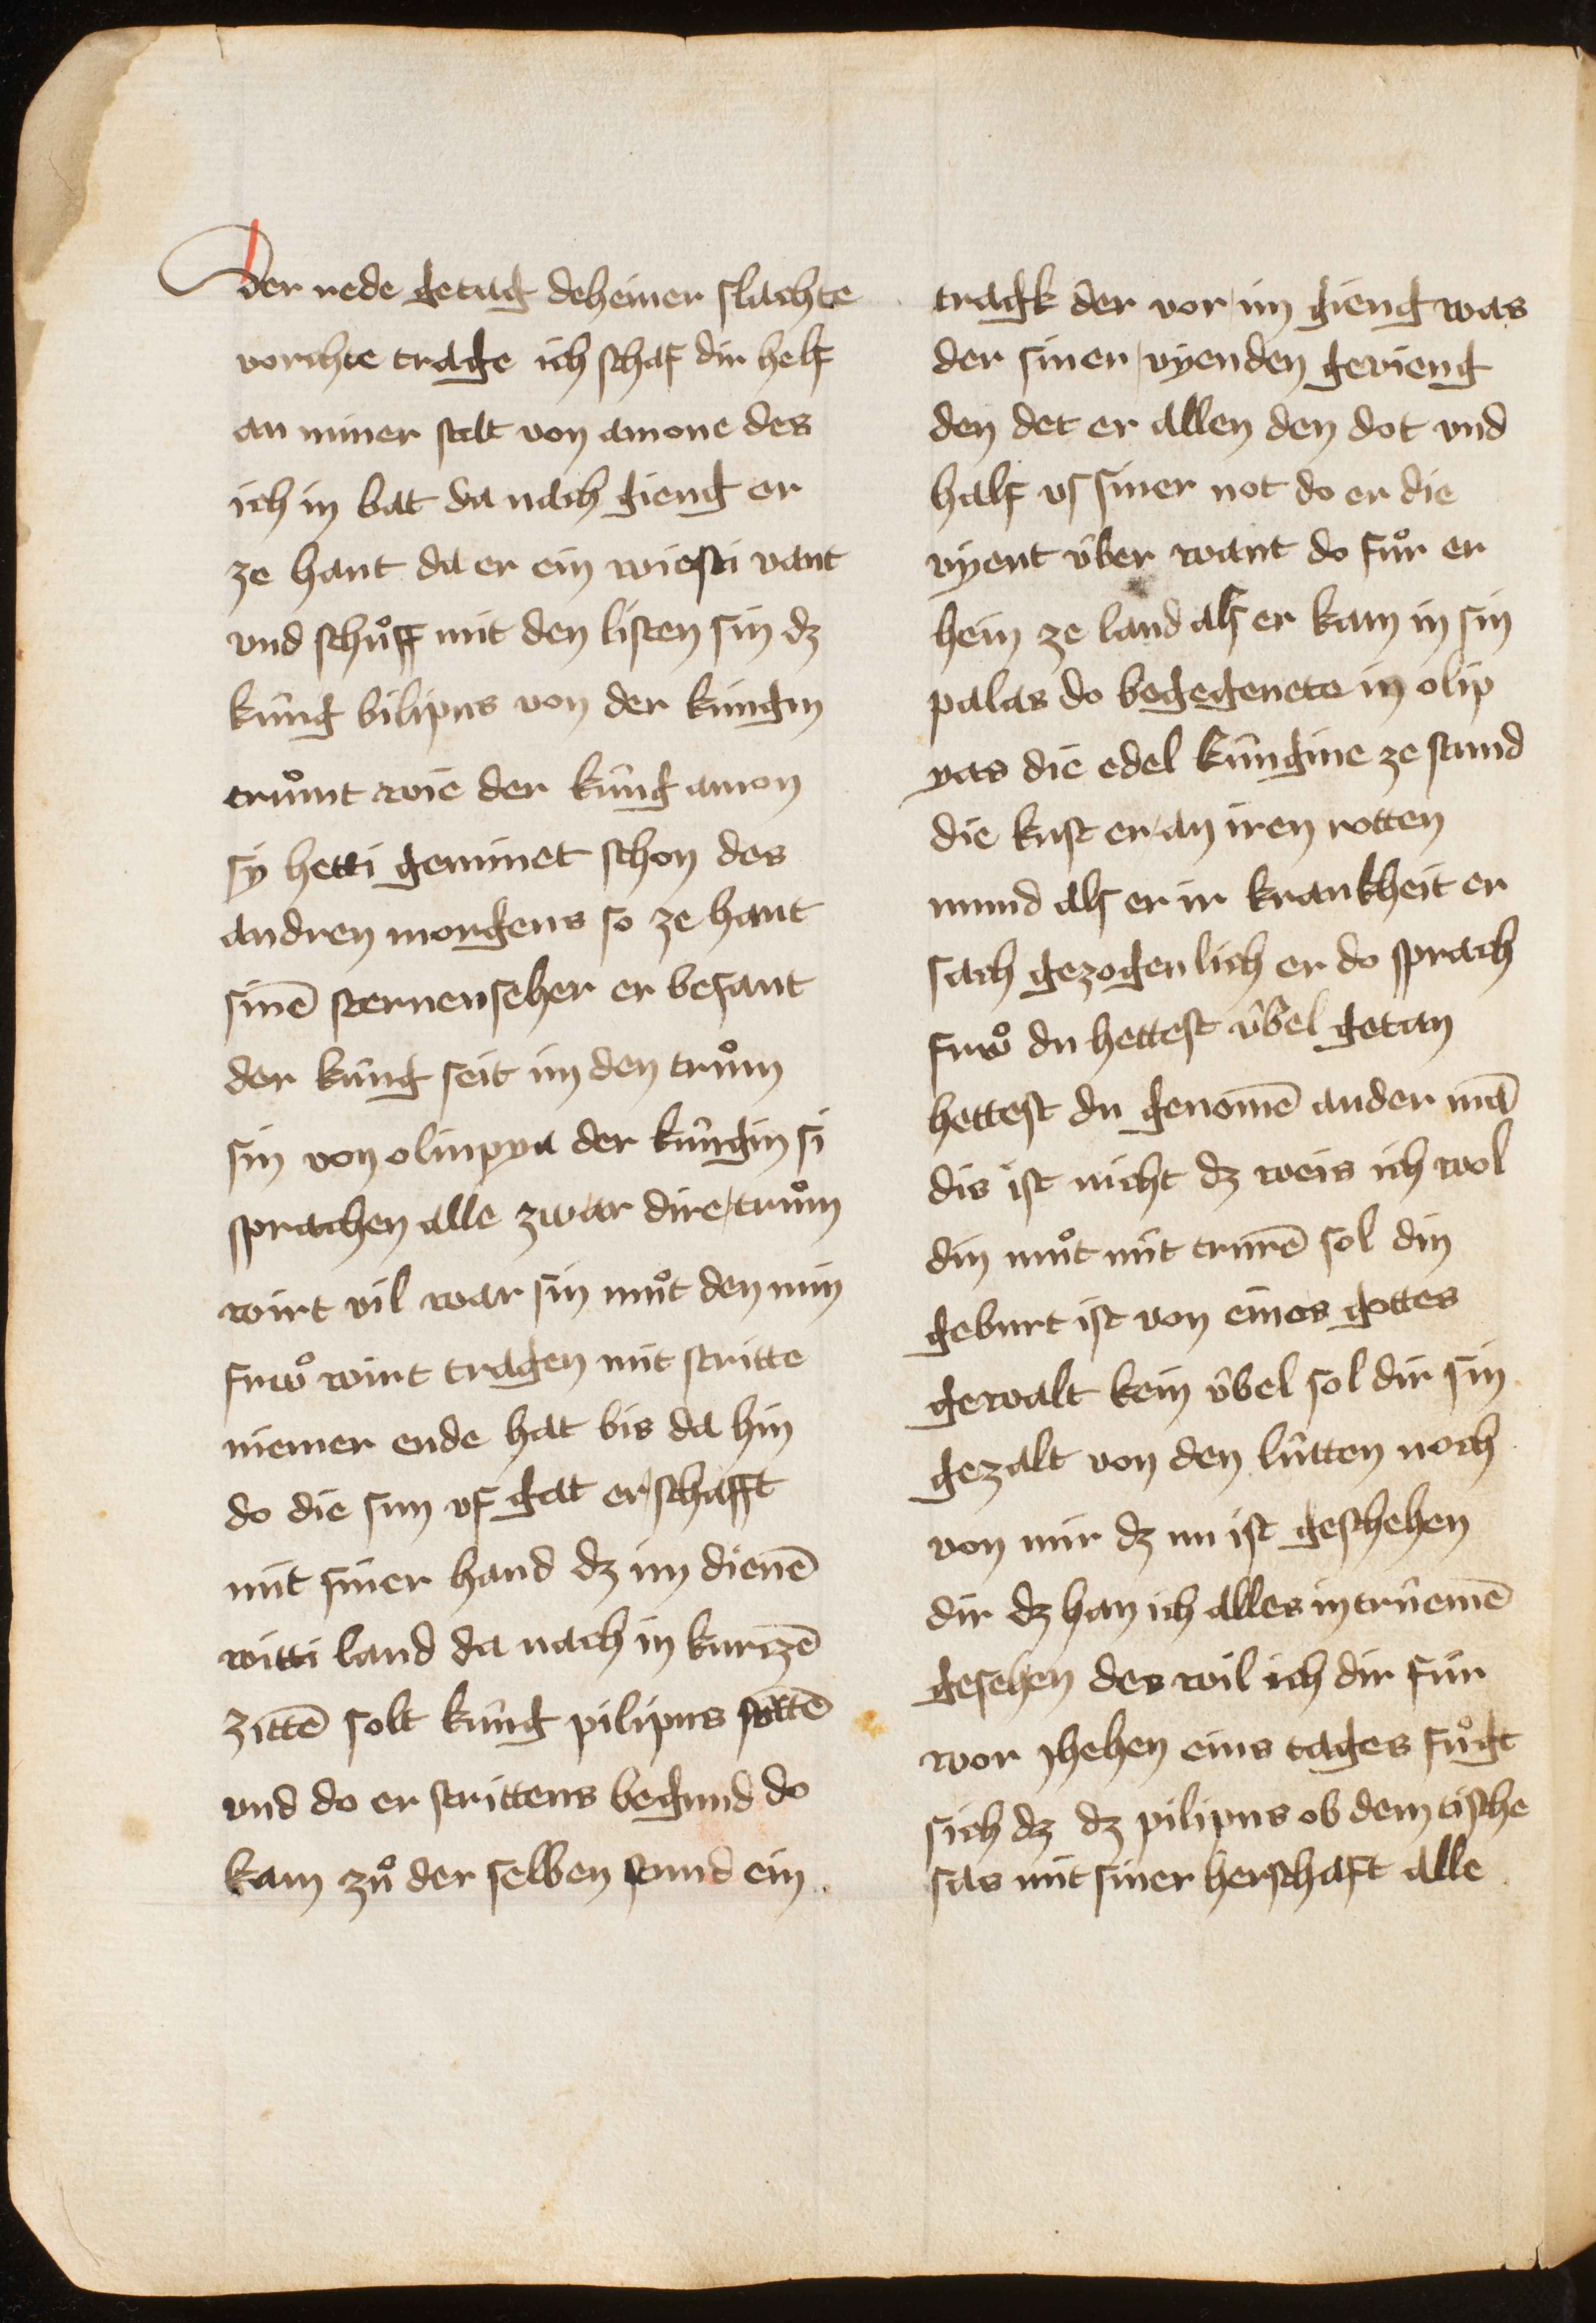 der rede getag deheiner slachte
vorchte trage ich schaf dir helf
an miner stat von amone des
ich in bat da nach gieng er
ze hant da er ein wiesti vant
vnd schůff mit den listen sin dz
kúng bilipus von der kúngin
trůmt wie der kúng amon
sy hetti geminet schon des
andren morgens so ze hant
sinē sternenseher er besant
der kúng seit im den trům
sin von olinpya der kúngin si
sprachen alle zwar dire trům
wirt vil war sin můt den min
frwͦ wirt tragen mit stritte
niemer ende hat bis da hin
do die sun vf gat er schafft
mit siner hand dz im dienē
witti land da nach in kurtzē
zittē solt kúng pilipus strittē
vnd do er strittens begund do
kam zů der selben stund ein
tragk der vor im gieng was
der siner vyenden gevieng
den det er allen den dot vnd
half vs siner not do er die
vyent úber want do fůr er
hein ze land als er kam in sin
palas do begegenete in olip
yas die edel kúngine ze stund
die kust er an iren rotten
mund als er ir krankheit er
sach gezogenlich er do sprach
frwͦ du hettest úbel getan
hettest du genomē ander mā
dis ist nicht dz weis ich wol
din můt nút trurē sol din
geburt ist von eines gottes
gewalt kein úbel sol dir sin
gezalt von den lútten noch
von mir dz nu ist geschehen
dir dz han ich alles in trúemē
gesehen des wil ich dir fúr
wor jhehen eins tages fůgt
sich dz dz pilipus ob dem tische
sas mit siner herschaft alle